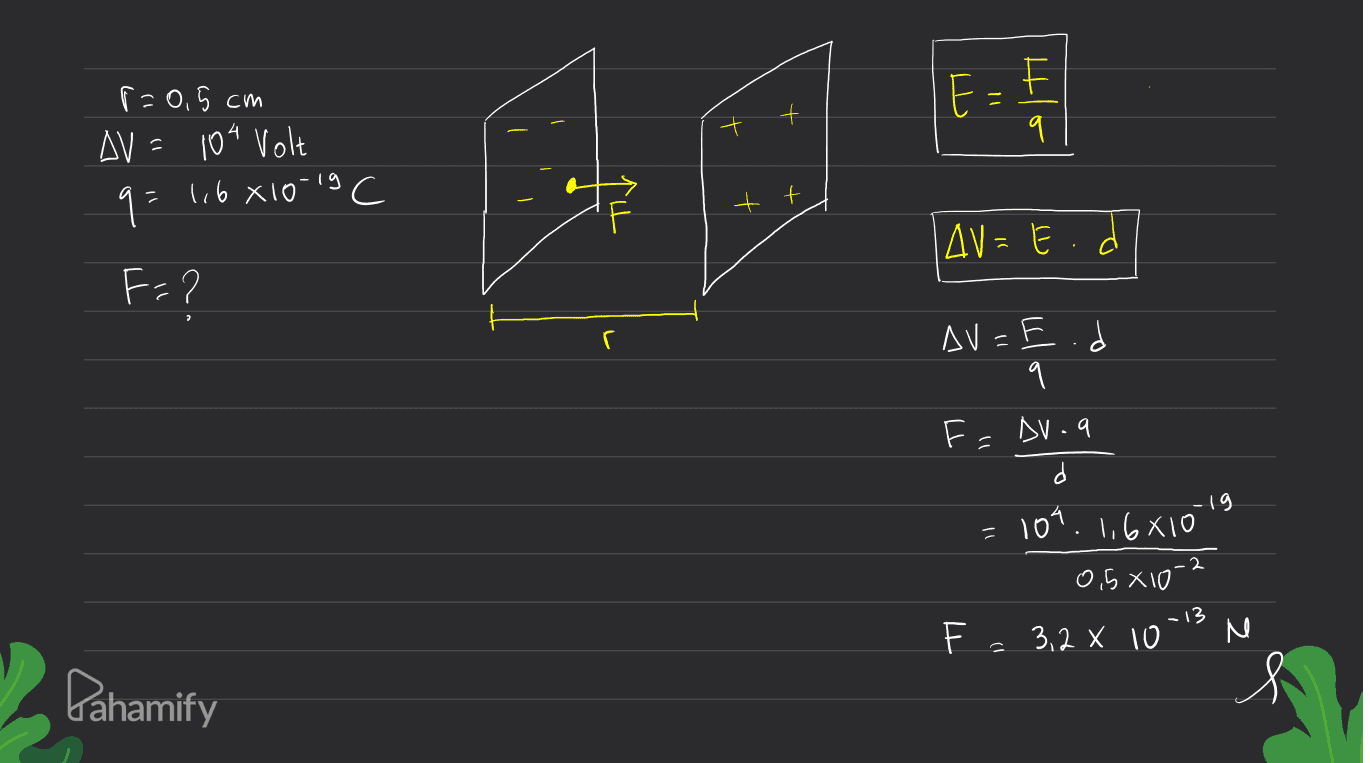 r = 0,5 cm
ΔV = 10⁴ Volt
q = 1,6 x10⁻¹⁹ C
F = ?
- -
- -
F
+ +
+ +
r
E = F/q
ΔV = E . d
ΔV = F/q . d
F = ΔV . q / d
= 10⁴ . 1,6 x10⁻¹⁹ / 0,5 x10⁻²
F = 3,2 x 10⁻¹³ N
Pahamify